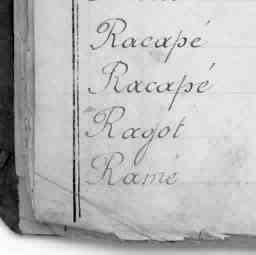 Racapé
Racapé
Ragot
Ramé